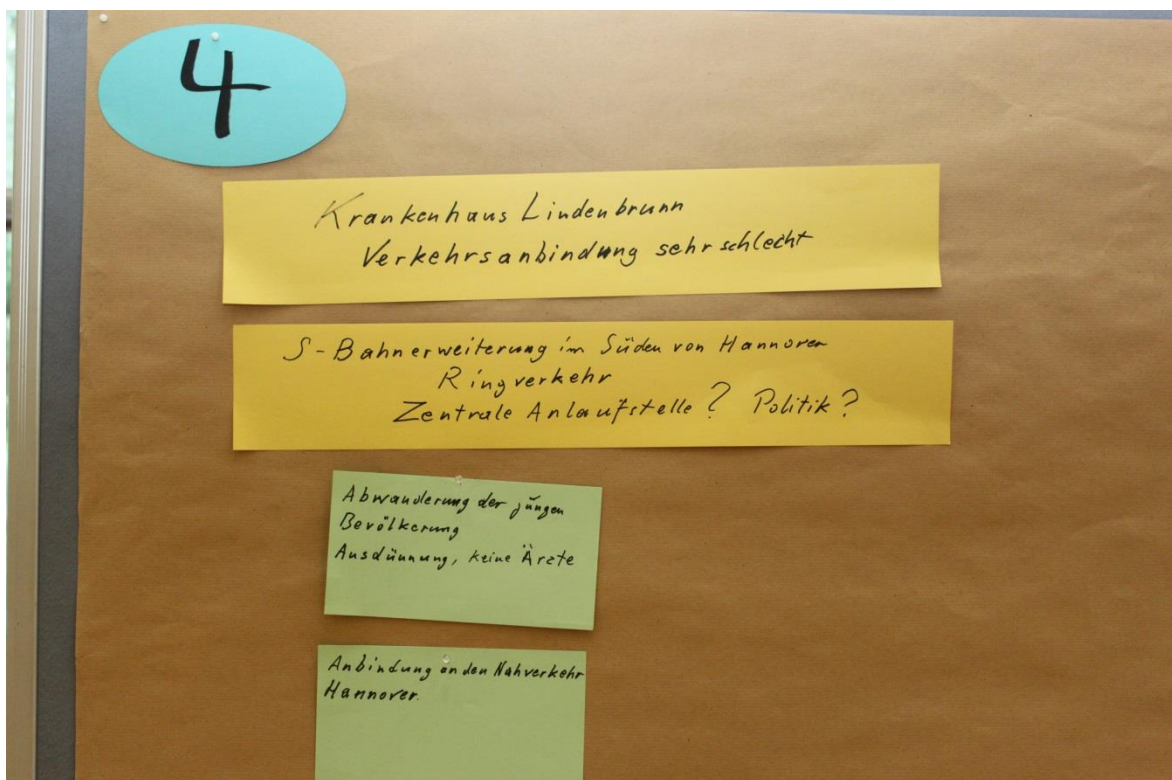 4
Krankenhaus Lindenbrunn
Verkehrsanbindung sehr schlecht
S-Bahnerweiterung im Süden von Hannover
Ringverkehr
Zentrale Anlaufstelle? Politik?
Abwanderung der jüngen
Bevölkerung
Ausdünnung, keine Ärzte
Anbindung an den Nahverkehr
Hannover.